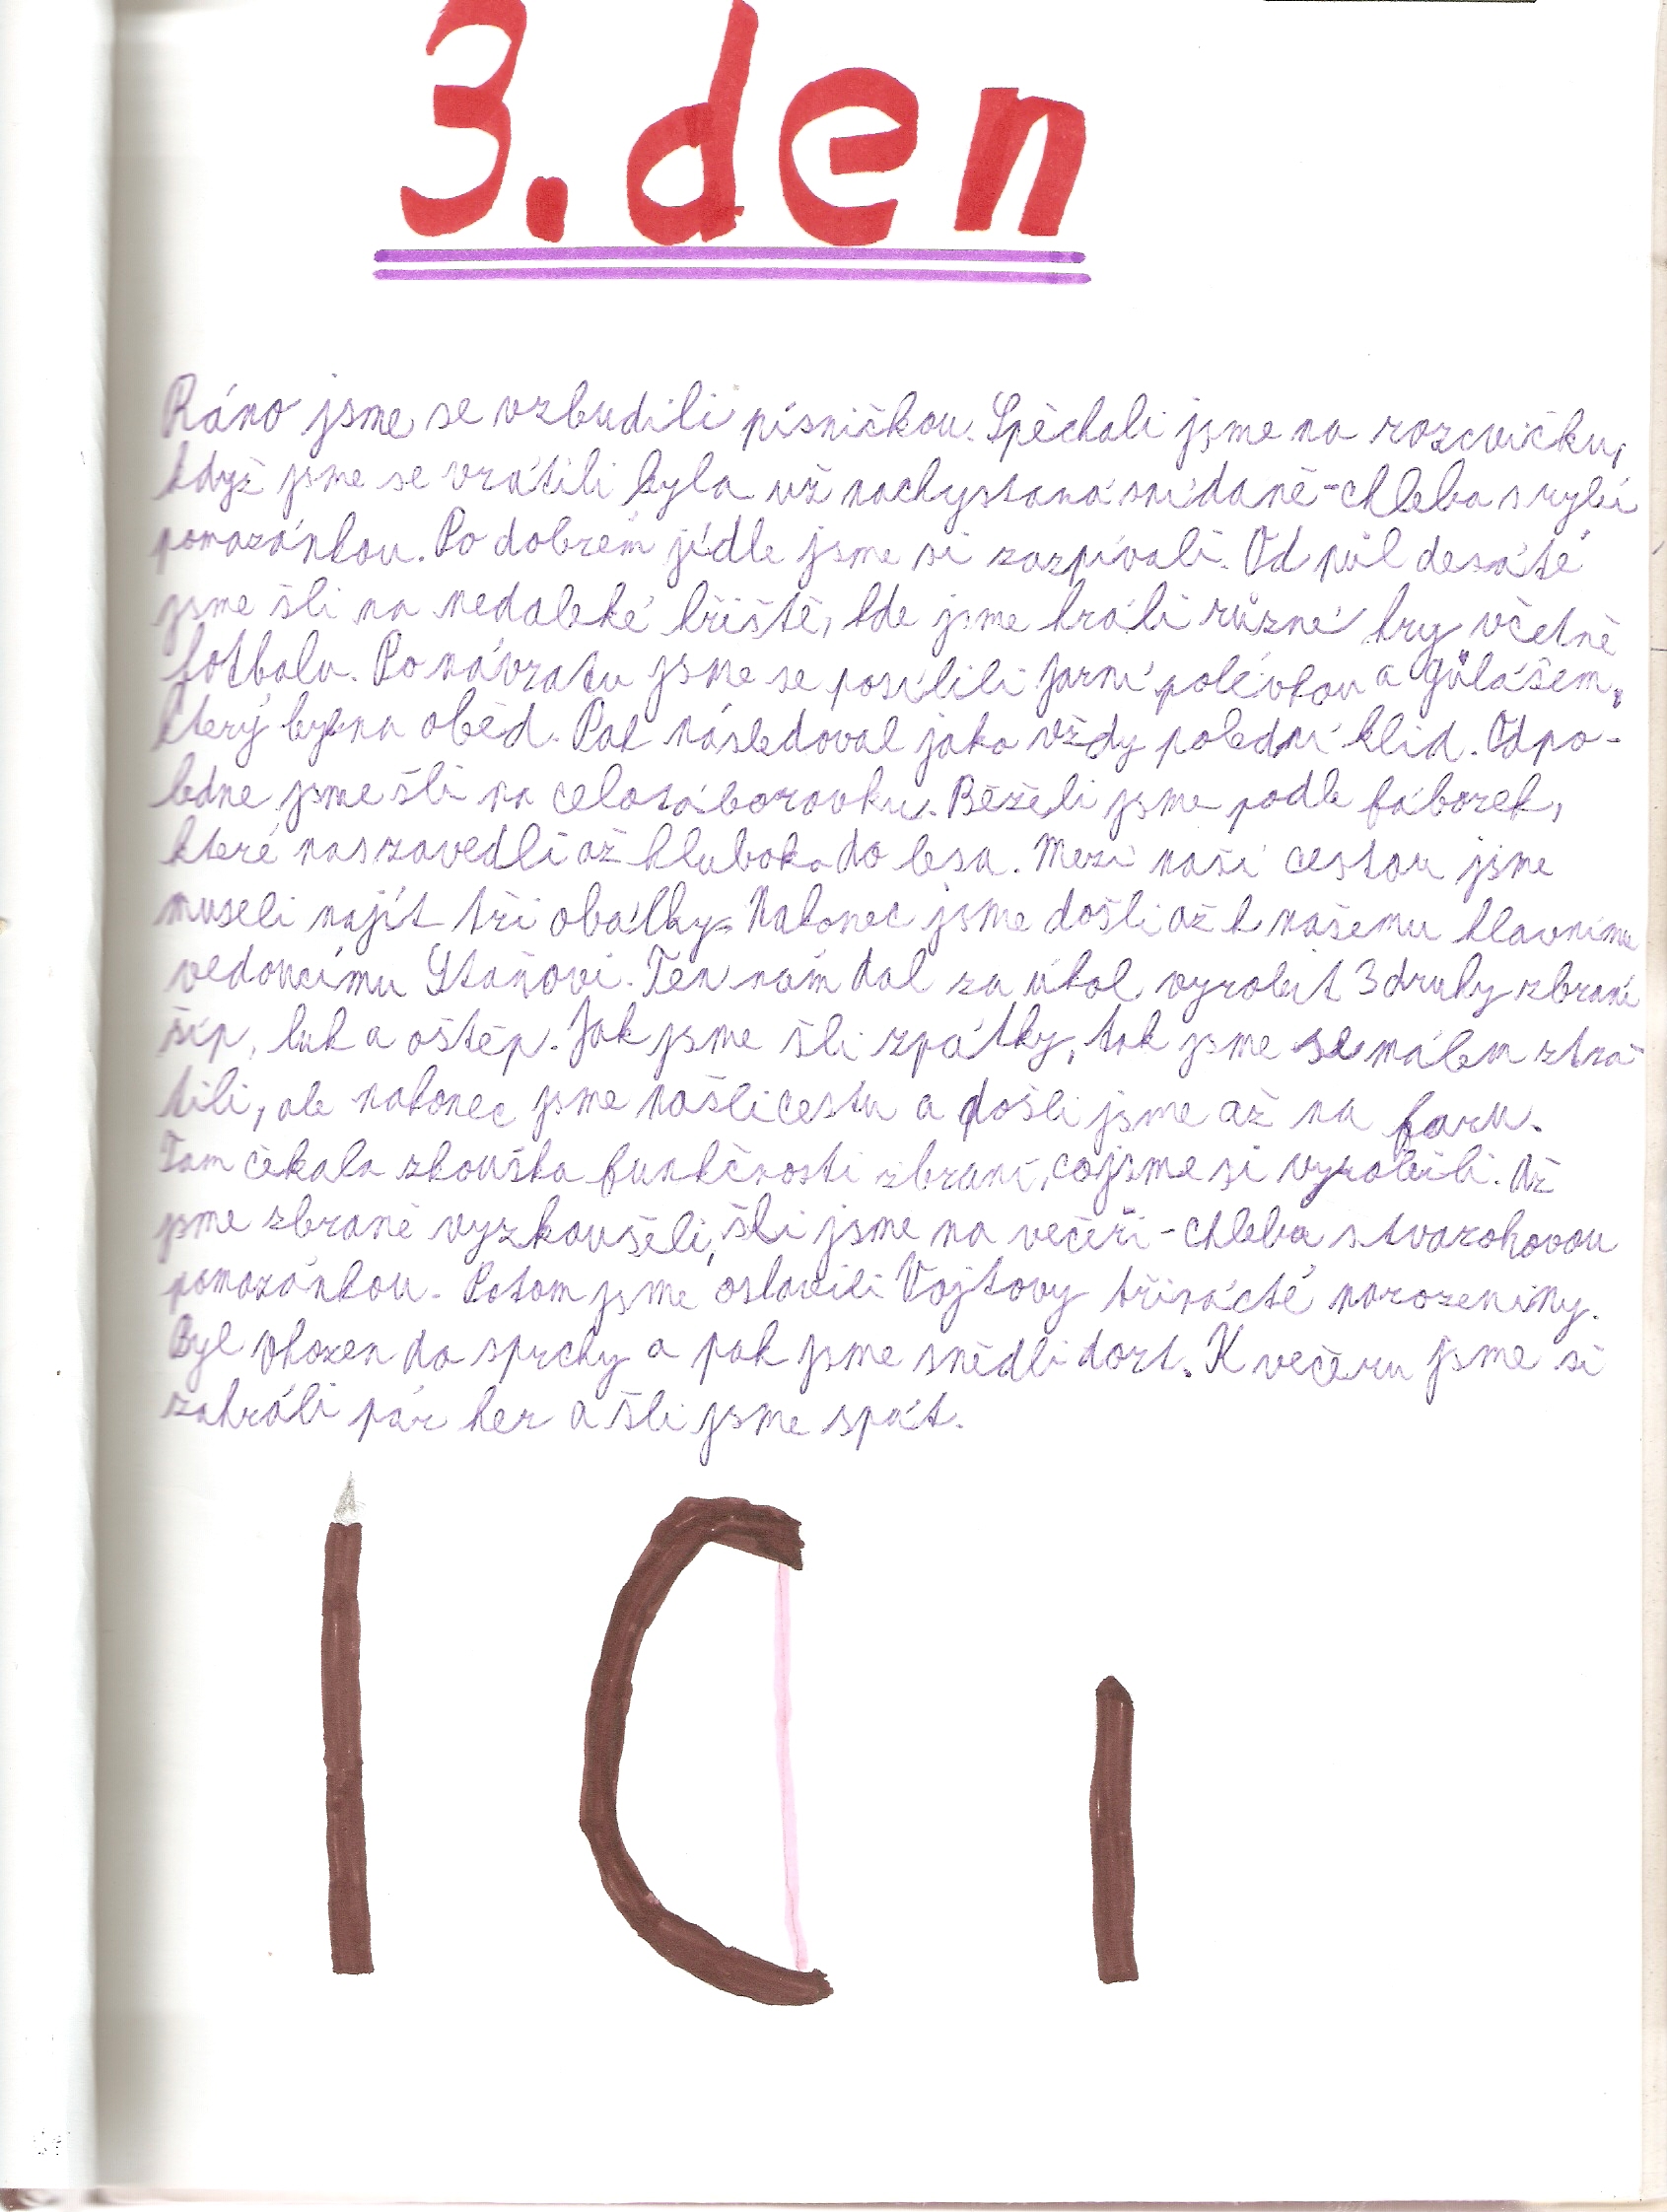 3.den
Ráno jsme se vzbudili písničkou. Spěchali jsme na rozcvičku,
když jsme se vrátili byla už nachystaná snídaně-chleba s rybí
pomazánkou. Po dobrém jídle jsme si zazpívali. Od půl desáté
jsme šli na nedaleké hřiště, kde jsme hráli různé hry včetně
fotbalu. Po návratu jsme se posílili jarní polévkou a gůlášem,
který byl na oběd. Pak následoval jako vždy polední klid. Odpo-
ledne jsme šli na celotáborovku. Běželi jsme podle fáborek,
které nas zavedli až hluboko do lesa. Mezi naší cestou jsme
museli najít tři obálky. Nakonec jsme došli až k našemu hlavnímu
vedoucímu Staňovi. Ten nám dal za úkol vyrobit 3 druhy zbraní
šíp, luk a oštěp. Jak jsme šli zpátky, tak jsme se málem ztra-
tili, ale nakonec jsme našli cestu a došli jsme až na faru.
Tam čekala zkouška funkčnosti zbraní, co jsme si vyrobili. Až
jsme zbraně vyzkoušeli, šli jsme na večeři-chleba s tvarohovou
pomazánkou. Potom jsme oslavili Vojtovy třinácté narozeniny.
Byl vhozen do sprchy a pak jsme snědli dort. K večeru jsme si
zahráli pár her a šli jsme spát.